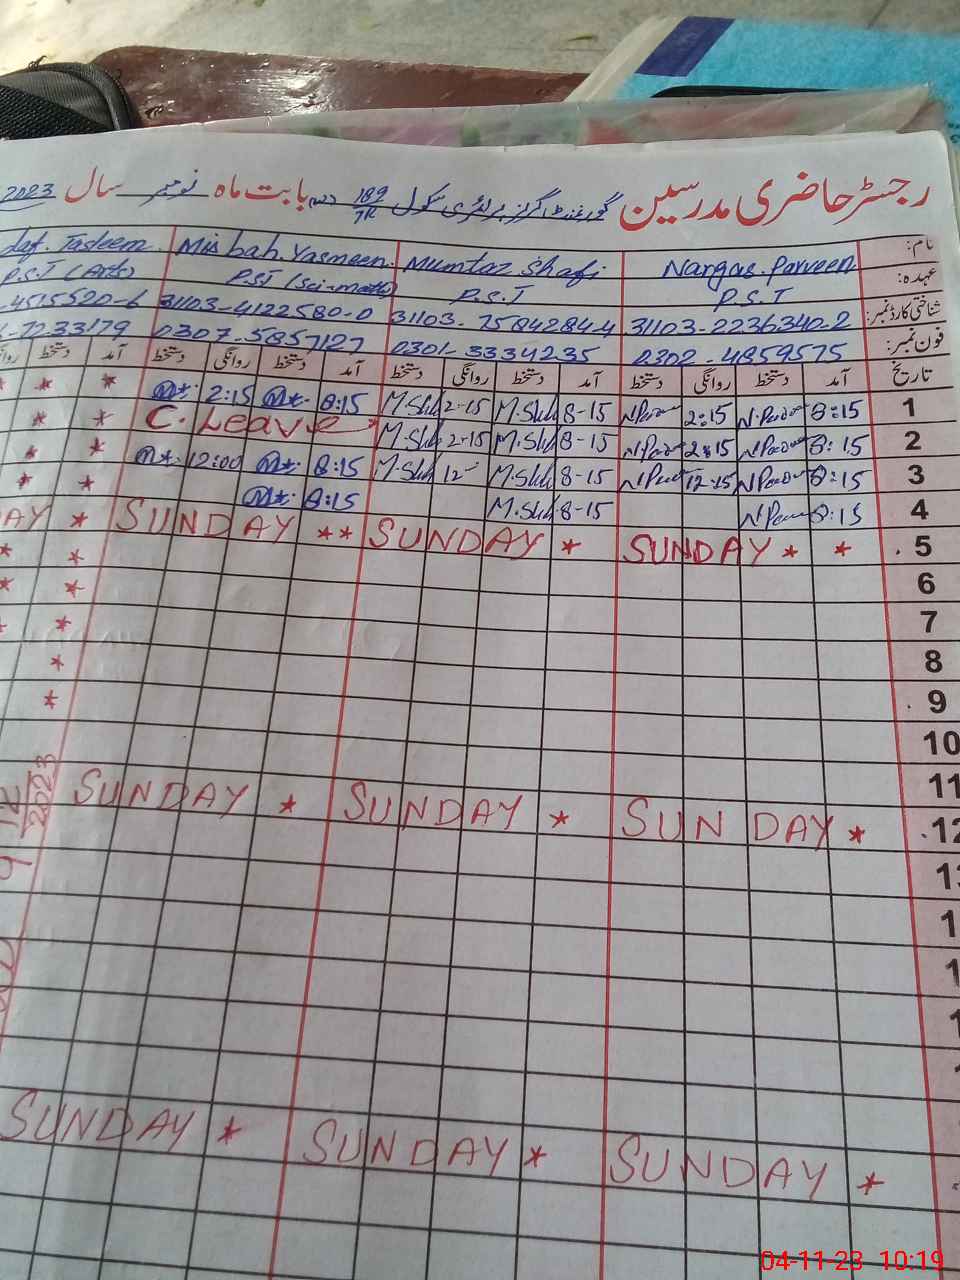 رجسٹر حاضری مدرسین گورنمنٹ گرلز پرائمری سکول 189/7R بابت ماہ نومبر سال 2023
نام: Nargas Parveen Mumtaz Shafi Misbah Yasmeen Tasleem
عہدہ: P.S.T P.S.T PST (Sci-math) P.S.T (Arts)
شناختی کارڈ نمبر: 31103-2236340-2 31103-7584284-4 31103-4122580-0 4515520-6
فون نمبر: 0302-4859575 0301-3334235 0307-5857127 7233179
تاریخ آمد دستخط روانگی دستخط آمد دستخط روانگی دستخط آمد دستخط روانگی دستخط آمد دستخط
1 8:15 2:15 8-15 M.Sh 2-15 M.Sh 8:15 2:15 * *
2 8:15 2:15 8-15 M.Sh 2-15 M.Sh C. Leave * *
3 8:15 12:15 8-15 M.Sh 12- M.Sh 8:15 12:00 * *
4 8:15 8-15 M.Sh 8:15 * *
5 * * SUNDAY * SUNDAY ** SUNDAY * AY
6 * *
7 * *
8 *
9 *
10
11
12 SUNDAY * SUNDAY * SUNDAY * 
SUNDAY * SUNDAY * SUNDAY *
04-11-23 10:19